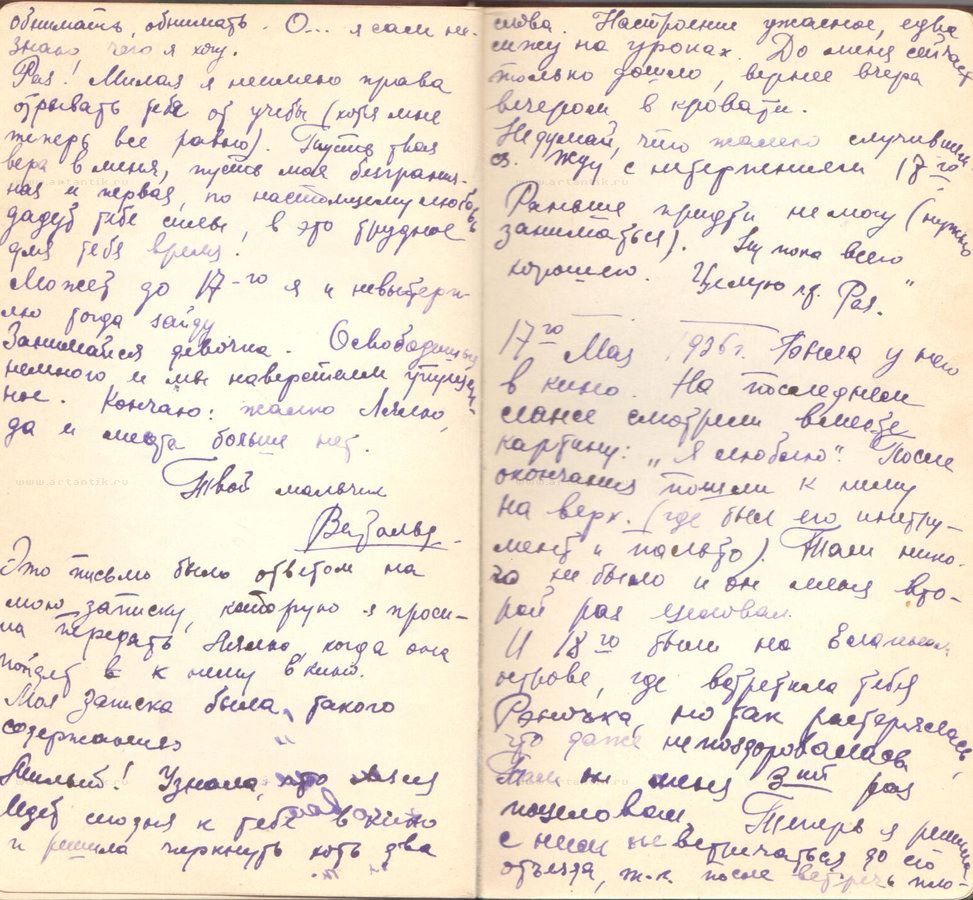 обнимать, обнимать. О... я сам не-
знаю, чего я хочу.
Рая! Милая я неимею права
отрывать тебя от учебы (хотя мне
теперь все равно). Пусть твая
вера в меня, пусть моя безгранич-
ная и первая, по настоящему любовь
дадут тебе силы, в это трудное
для тебя время.
Может до 17-го я и невыдерж-
лю тогда зайду
Занимайся девочка. Освободишься
немного и мы наверстаем упущен-
ное. Кончаю: жалко Лялю,
да и места больше нет.
Твой мальчик
Это письмо было ответом на
мою записку, которую я проси-
ла передать Лялю, когда она
пойдет к нему в кино.
Моя записка была такого
содержания
"
Милый! Узнала, что Ляля
идет сегодня к тебе в кино
и решила черкнуть хоть два
слова. Настроение ужасное, едва
сижу на уроках. До меня сейчас
только дошло, вернее вчера
вечером в кровати.
Не думай, что жалею случивше-
ся. Жду с нетерпением 17-го
Раньше придти не могу (нужно
заниматься). Ну пока всего
хорошего. Целую кр. Рая."
17го Мая 1936 г. Была у него
в кино. На последнем
сеансе смотрели вместе
картину: „Я люблю". После
окончания пошли к нему
на верх. (где был его инстру-
мент и пальто). Там нико-
го не было и он меня вто-
рой раз целовал.
И 18го были на Елагином
острове, где встретила тебя
Раичка, но так растерялась,
что даже непоздоровалась,
Там он меня 3ий раз
поцеловал. Теперь я решила
с ним не встречаться до его
отъезда, т.к. после встречь пло-
www.artantik.ru
www.artantik.ru
www.artantik.ru
www.artantik.ru